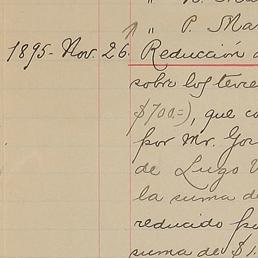 " P. Mar
1895 - Nov. 26. Reduccion
sobre los terre
$700=), que co
por Mr. Gor
de Lugo V
la suma de
reducido po
suma de $1